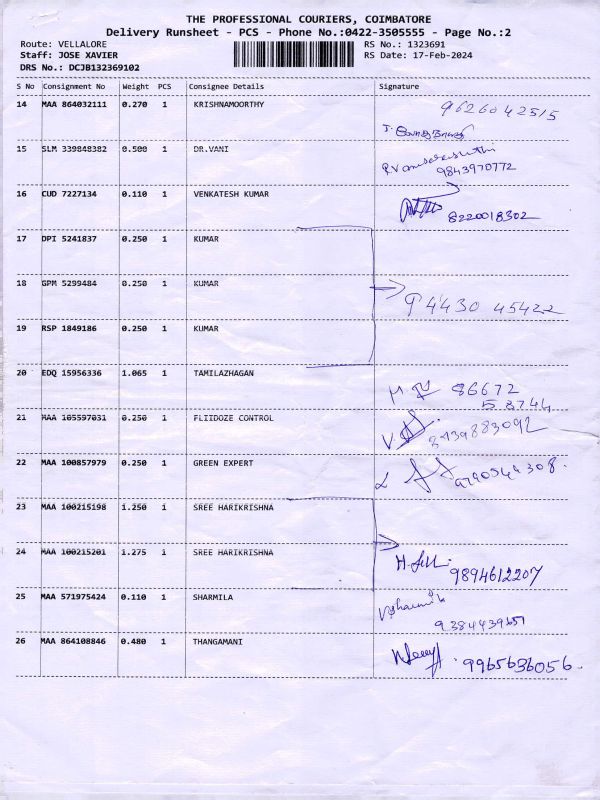 THE PROFESSIONAL COURIERS, COIMBATORE
Delivery Runsheet - PCS - Phone No.:0422-3505555 - Page No.:2
Route: VELLALORE RS No.: 1323691
Staff: JOSE XAVIER RS Date: 17-Feb-2024
DRS No.: DCJB132369102
S No Consignment No Weight PCS Consignee Details Signature
14 MAA 864032111 0.270 1 KRISHNAMOORTHY 9626042515
15 SLM 339848382 0.500 1 DR.VANI
9843970772
16 CUD 7227134 0.110 1 VENKATESH KUMAR
8220018302
17 DPI 5241837 0.250 1 KUMAR
18 GPM 5299484 0.250 1 KUMAR
94430 45422
19 RSP 1849186 0.250 1 KUMAR
20 EDQ 15956336 1.065 1 TAMILAZHAGAN
86672
58744
21 MAA 105597031 0.250 1 FLIIDOZE CONTROL
8439883092
22 MAA 100857979 0.250 1 GREEN EXPERT
23 MAA 100215198 1.250 1 SREE HARIKRISHNA
24 MAA 100215201 1.275 1 SREE HARIKRISHNA
9894612207
25 MAA 571975424 0.110 1 SHARMILA
26 MAA 864108846 0.480 1 THANGAMANI
9965636056